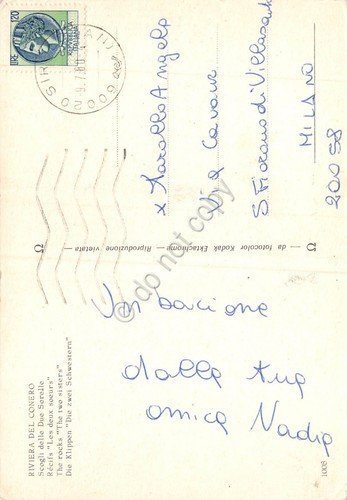 RIVIERA DEL CONERO
Scogli delle Due Sorelle
Récifs "Les deux soeurs"
The rocks "The two sisters"
Die Klippen "Die zwei Schwestern"
1008
Un bacione
dalla tua
amica Nadia
Ω da fotocolor Kodak Ektachrome - Riproduzione vietata Ω
x Marollo Angela
Via Cavour
S. Fiorano di Villasanta
MILANO
20058
LIRE 120
60026
NUMANA
do not copy